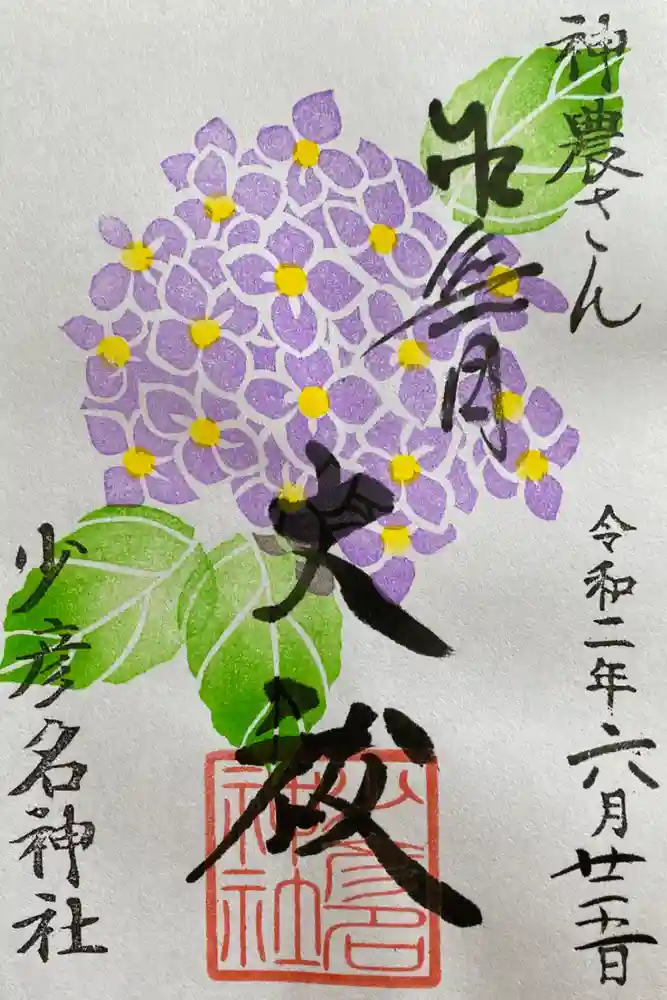 神農さん
水無月
大祓
令和二年六月廿五日
少彦名神社
少彦名
神社